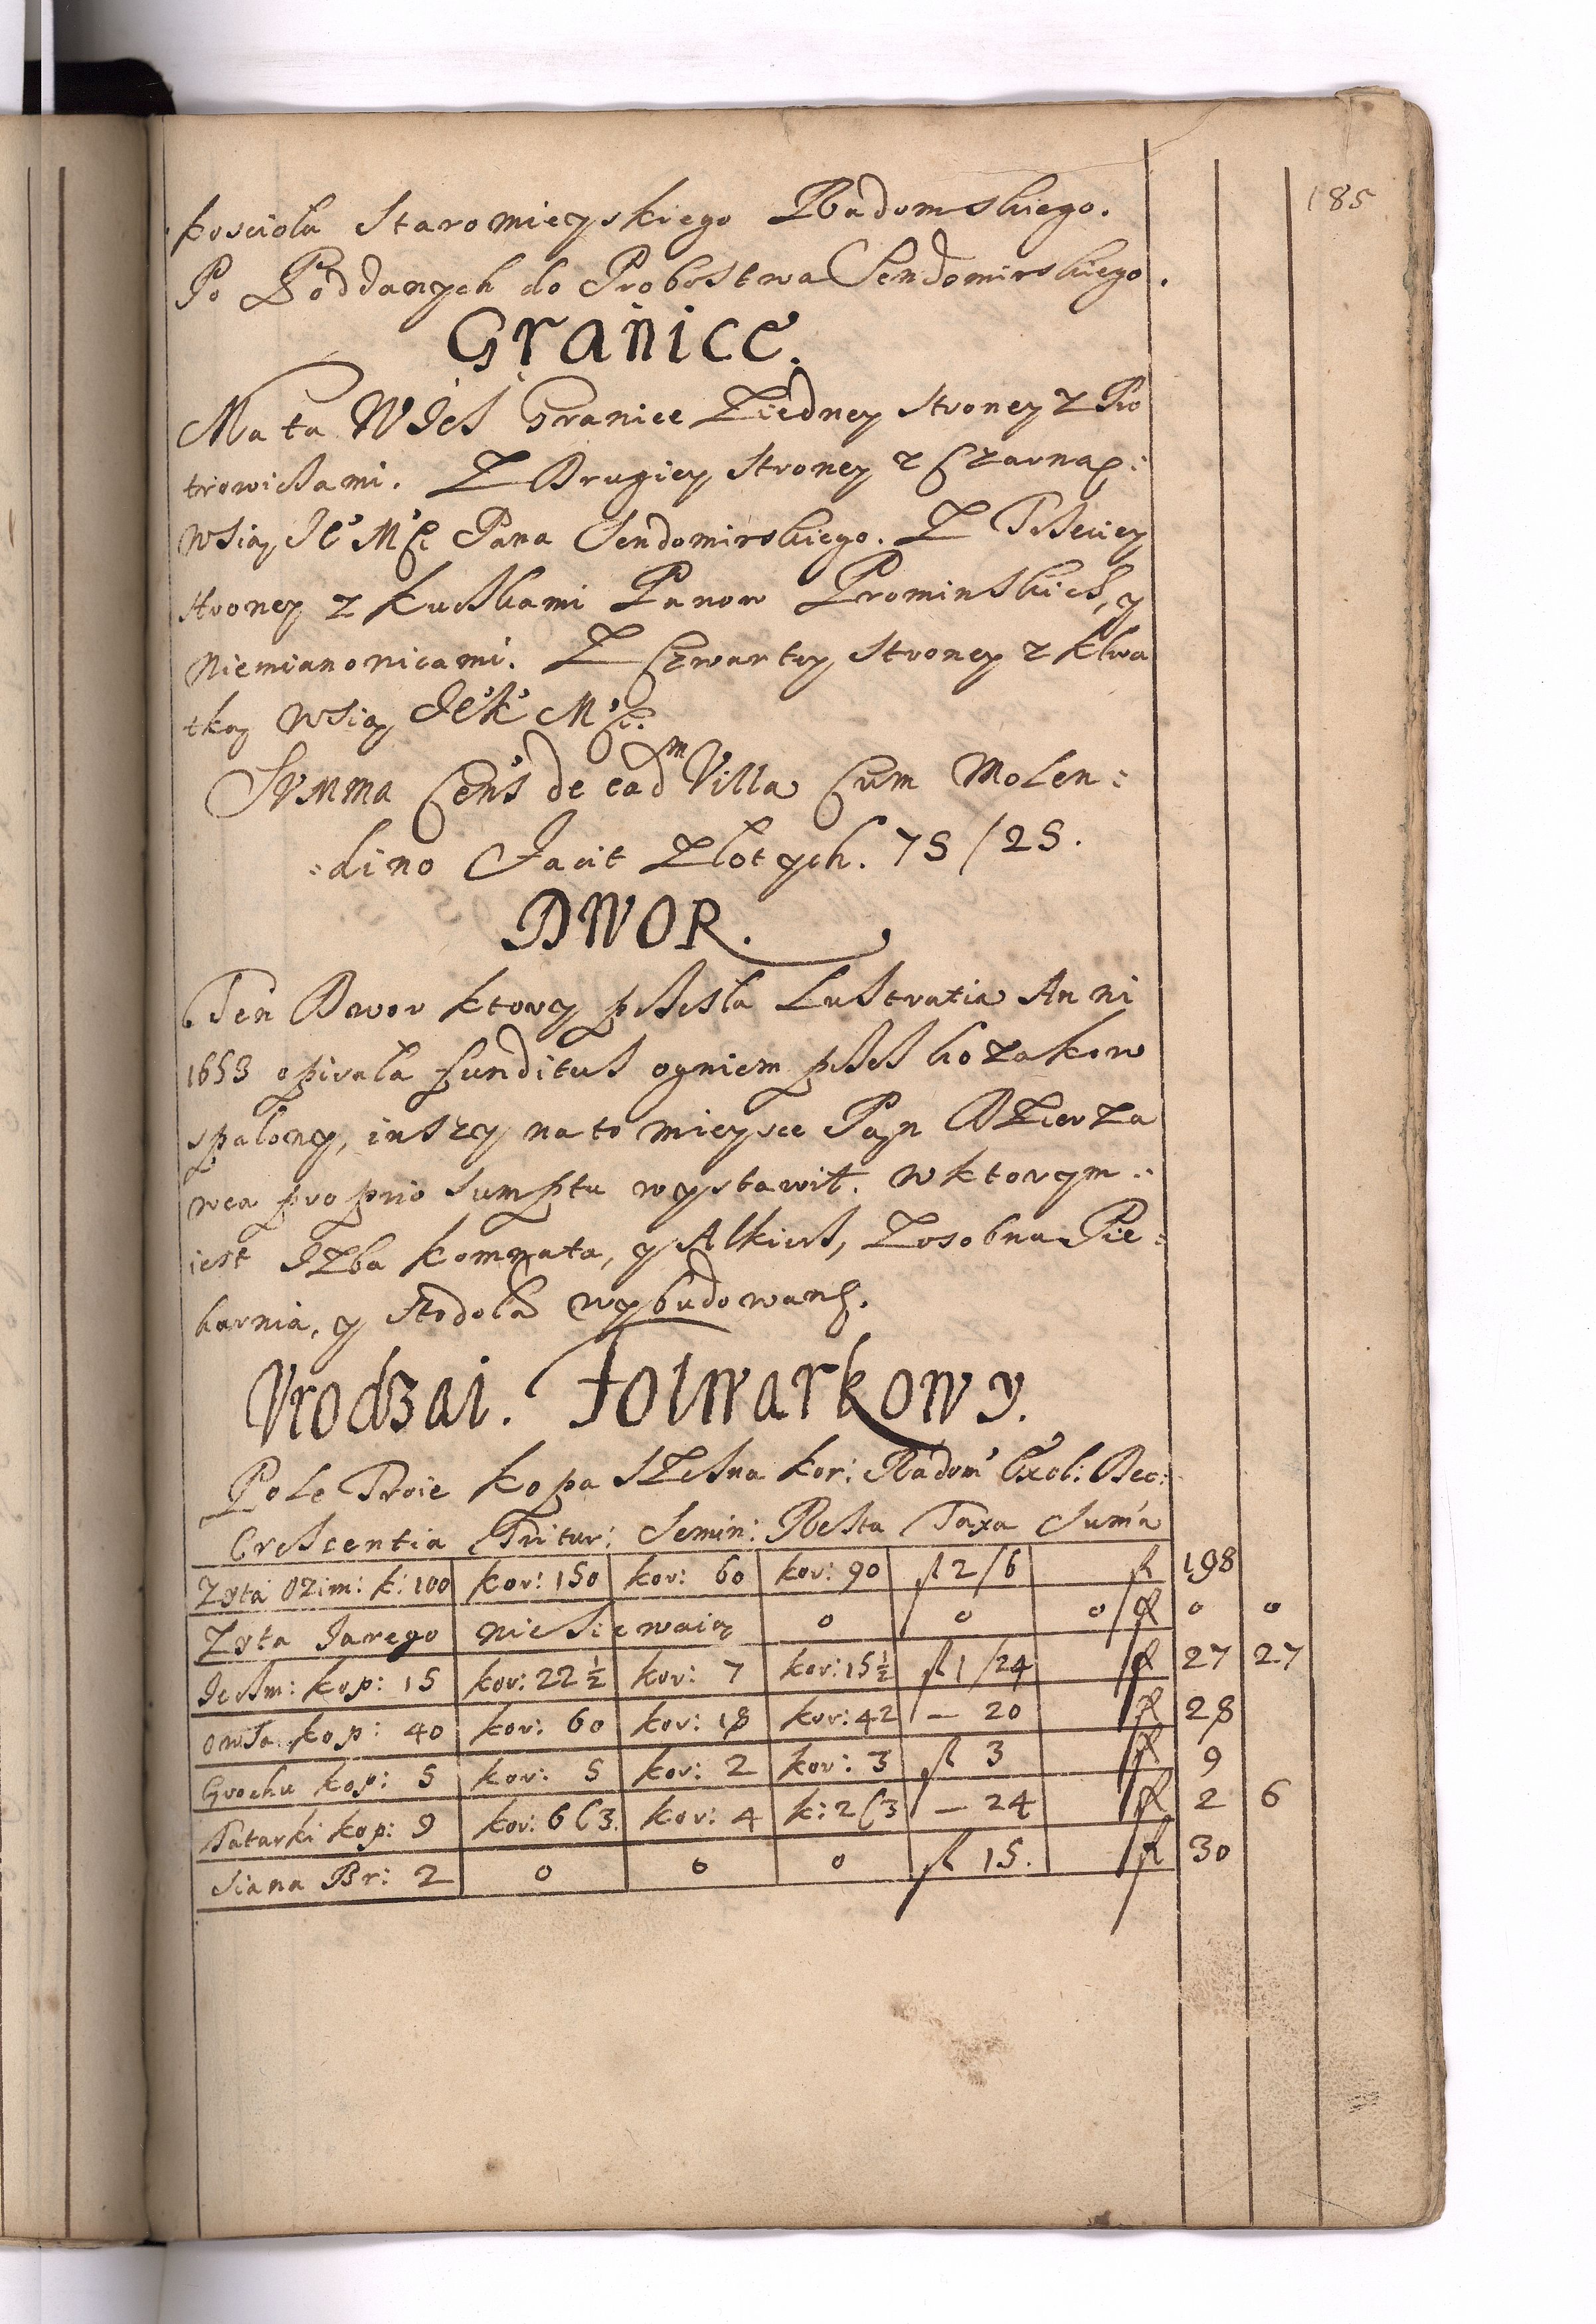 185
kosciola Staromieyskiego Radomskiego.
Po Poddanych do Probostwa Sendomirskiego.
Granice.
Ma ta Wies Granice Ziedney Stroney z Pio
trowicami. Z Drugiey Stroney z Czarną:
Wsią Je' M'Ci Pana Sendomirskiego. Z Trzeciey
Stroney z kuczkami Panow Prominskich, y
Niemianowicami. Z Czwartey Stroney z klwa
tką Wsią Je'k' M'Ci.
Summa Cens' de ead^m Villa Cum Molen:
:dino Facit Złotych. 75/25.
DWOR.
Ten Dwor ktory przesla Lustratia Anni
1653 opisała funditus ogniem przes kozakow
spalony, inszy na to mieysce Pan Dzierza
wca proprio sumptu wystawił. w ktorym:
iest Izba komnata, y Alkierz, Zosobna Pie:
karnia, y Stodoła wybudowana.
Vrodzai. Folwarkowy.
Pole Troie kopa kor: Radom' Exol: Dec:
Crescentia Tritur: Semin: Resta Taxa Suma
Zyta Ozim: k: 100 kor: 150 kor: 60 kor: 90 fl 2/6 fl 198
Zyta Jarego nie Siewaią 0 0 0 fl 0 0
Jeczm: kop: 15 kor: 22 ½ kor: 7 kor: 15 ½ fl 1/24 fl 27 27
owsa kop: 40 kor: 60 kor: 18 kor: 42 — 20 fl 28
Grochu kop: 5 kor: 5 kor: 2 kor: 3 fl 3 fl 9
Tatarki kop: 9 kor: 6 C 3. kor: 4 k: 2 C 3 — 24 fl 2 6
Siana Br: 2 0 0 0 fl 15. fl 30